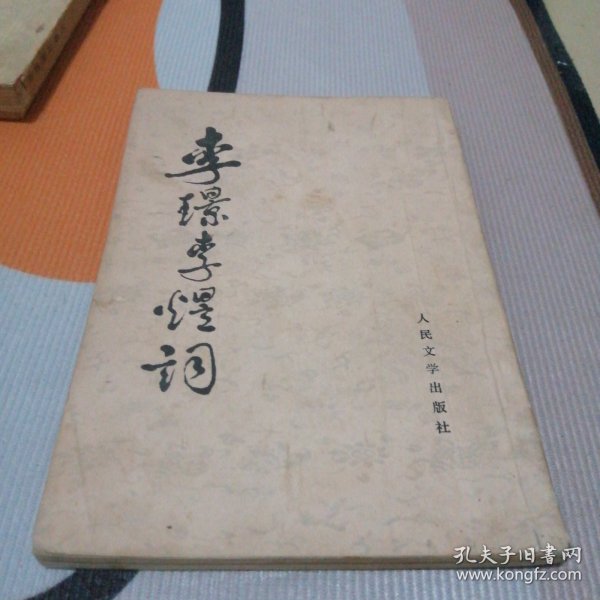 李璟李煜词
人民文学出版社
孔夫子旧书网
www.kongfz.com